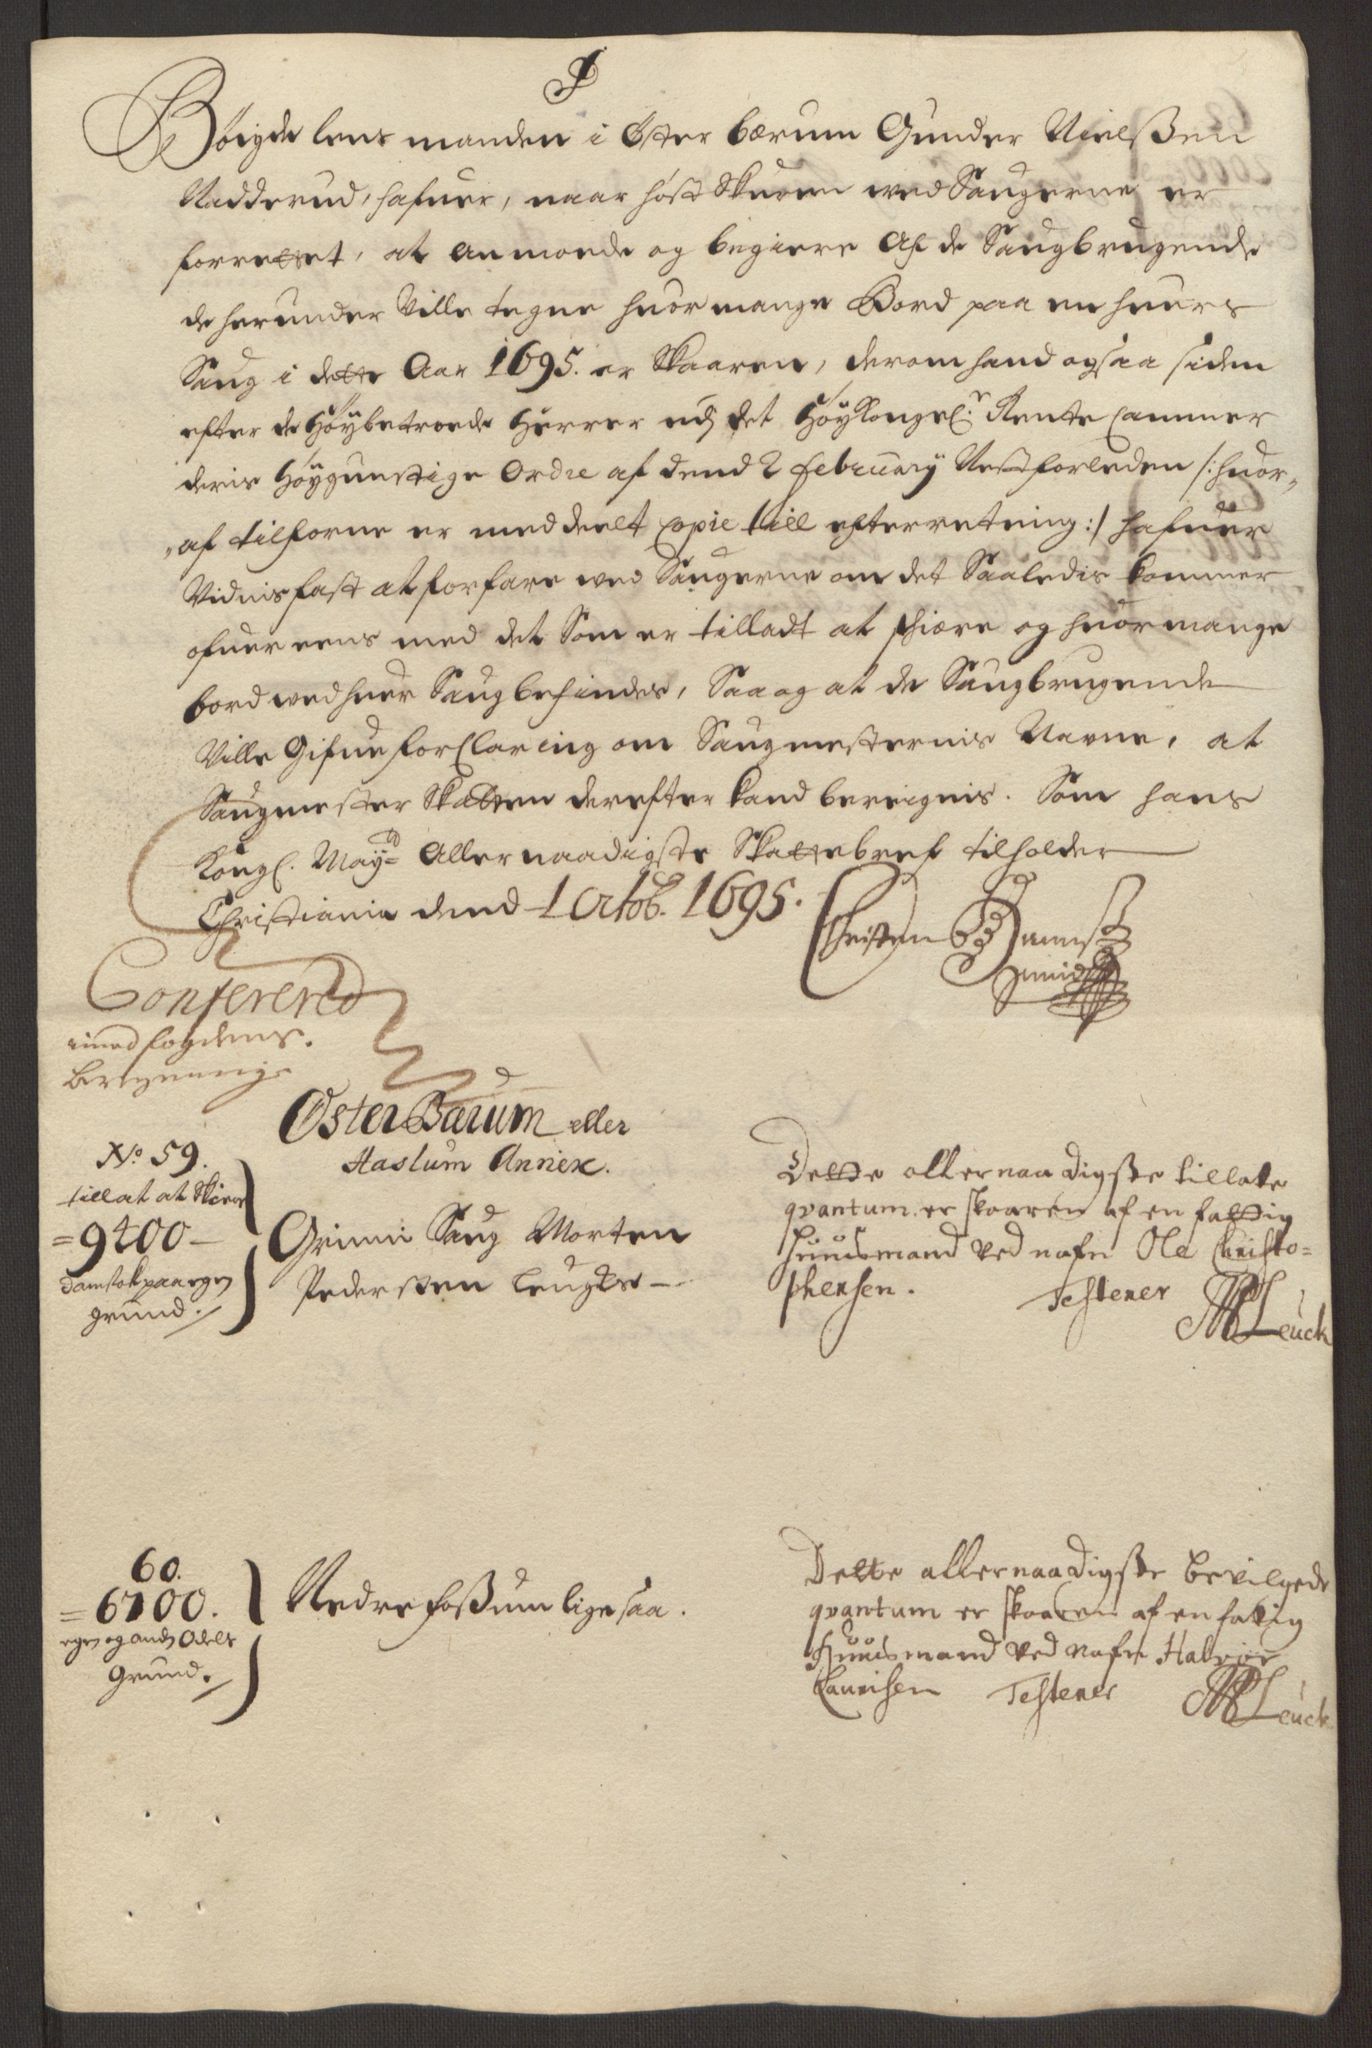 Böigde lens manden i Øster bærum Gunder Nielsßen
Nadderud, hafuer, naar höst Skuren wed Saugerne er
forrettet, at anmoede og begiere Af de Saugbrugende
de herunder Ville tegne huormange Bord paa en huers
Saug i dette Aar 1695. er Skaaren, derom hand ogsaa siden
efter de Höybetroede Herrer udj det HöyKongel: Rente Cammer
deris Höygunstige Ordre af dend 2 february Nestforleden /: huor,,
,,af tilforne er meddeelt Copie till efterretning :/ hafuer
Vidnisfast at forfare wed Saugerne om det Saaledis kommer
ofuer eens med det Som er tilladt at skiære og huormange
bord wed huer Saug befindes, Saa og at de Saugbrugende
Ville Gifue forClaring om Saugmesternis Navne, at
Saugmester Skatten derefter kand bereignis. Som hans
Kongl. Mayts Allernaadigste Skattebref tilholder
Christiania dend 1 Octob. 1695.
Christen
Conferered
med fogdens
Beregning
Øster Bærum eller
Haslum Annex.
No 59.
tillat at Skiere
= 9400 —
damstok paa egen
grund.
Grinni Saug Morten
Pedersten Leugtes —
Dette allernaadigste tillate
qvantum er skaaren af en fattig
huusmand ved nafn Ole Christo=
phersen. Testerer
MPLeuck
60.
= 6700.
egen og andj Odels
Grund.
Nedre foßum lige saa.
Dette allernaadigste bevilgede
qvantum er skaaren af en fattig
huusmand ved nafn Halvor
Lauritsen Testerer MPLeuck